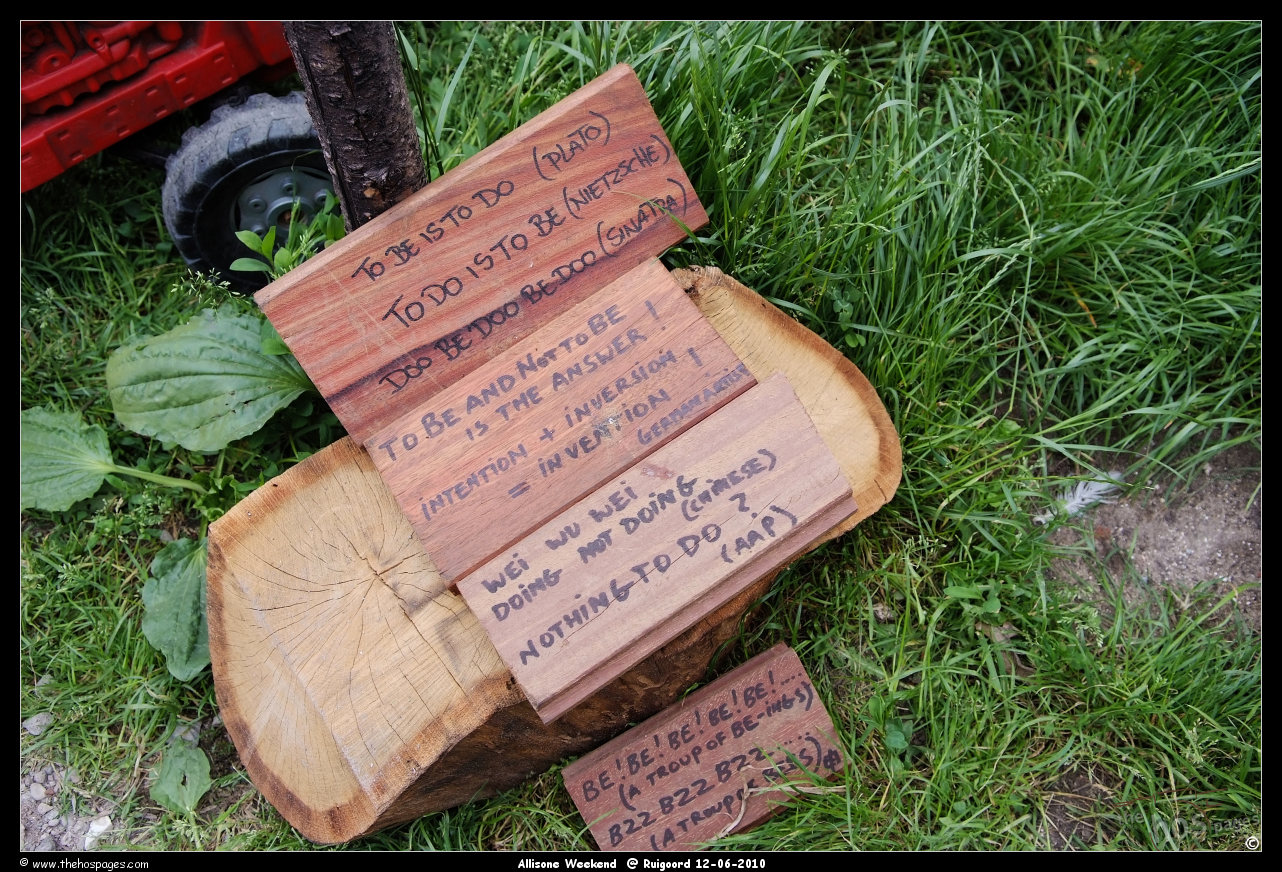 TO BE IS TO DO (PLATO)
TO DO IS TO BE (NIETZSCHE)
DOO BE DOO BE DOO (SINATRA)
TO BE AND NOT TO BE
IS THE ANSWER !
INTENTION + INVERSION !
= INVENTION
WEI WU WEI
DOING NOT DOING
(CHINESE)
NOTHING TO DO ?
(AAP)
BE! BE! BE! BE! BE!....
(A TROUP OF BE-INGS)
BZZ BZZ BZZ
(A TROUP
© www.thehospages.com
Allisone Weekend @ Ruigoord 12-06-2010
©